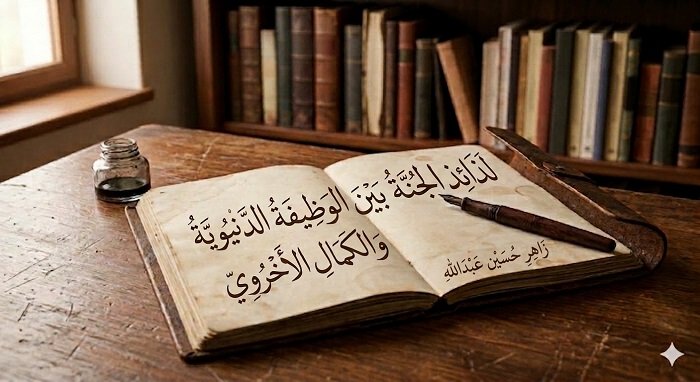 لَذَائِذ الجُنَّةُ بَيْنَ الوَظِيفَةُ الدَّنْيُويَّةُ
وَالكَمَالِ الأُخْرُوِيّ
زَاهِر حُسَيْن عَبْدَاللهِ